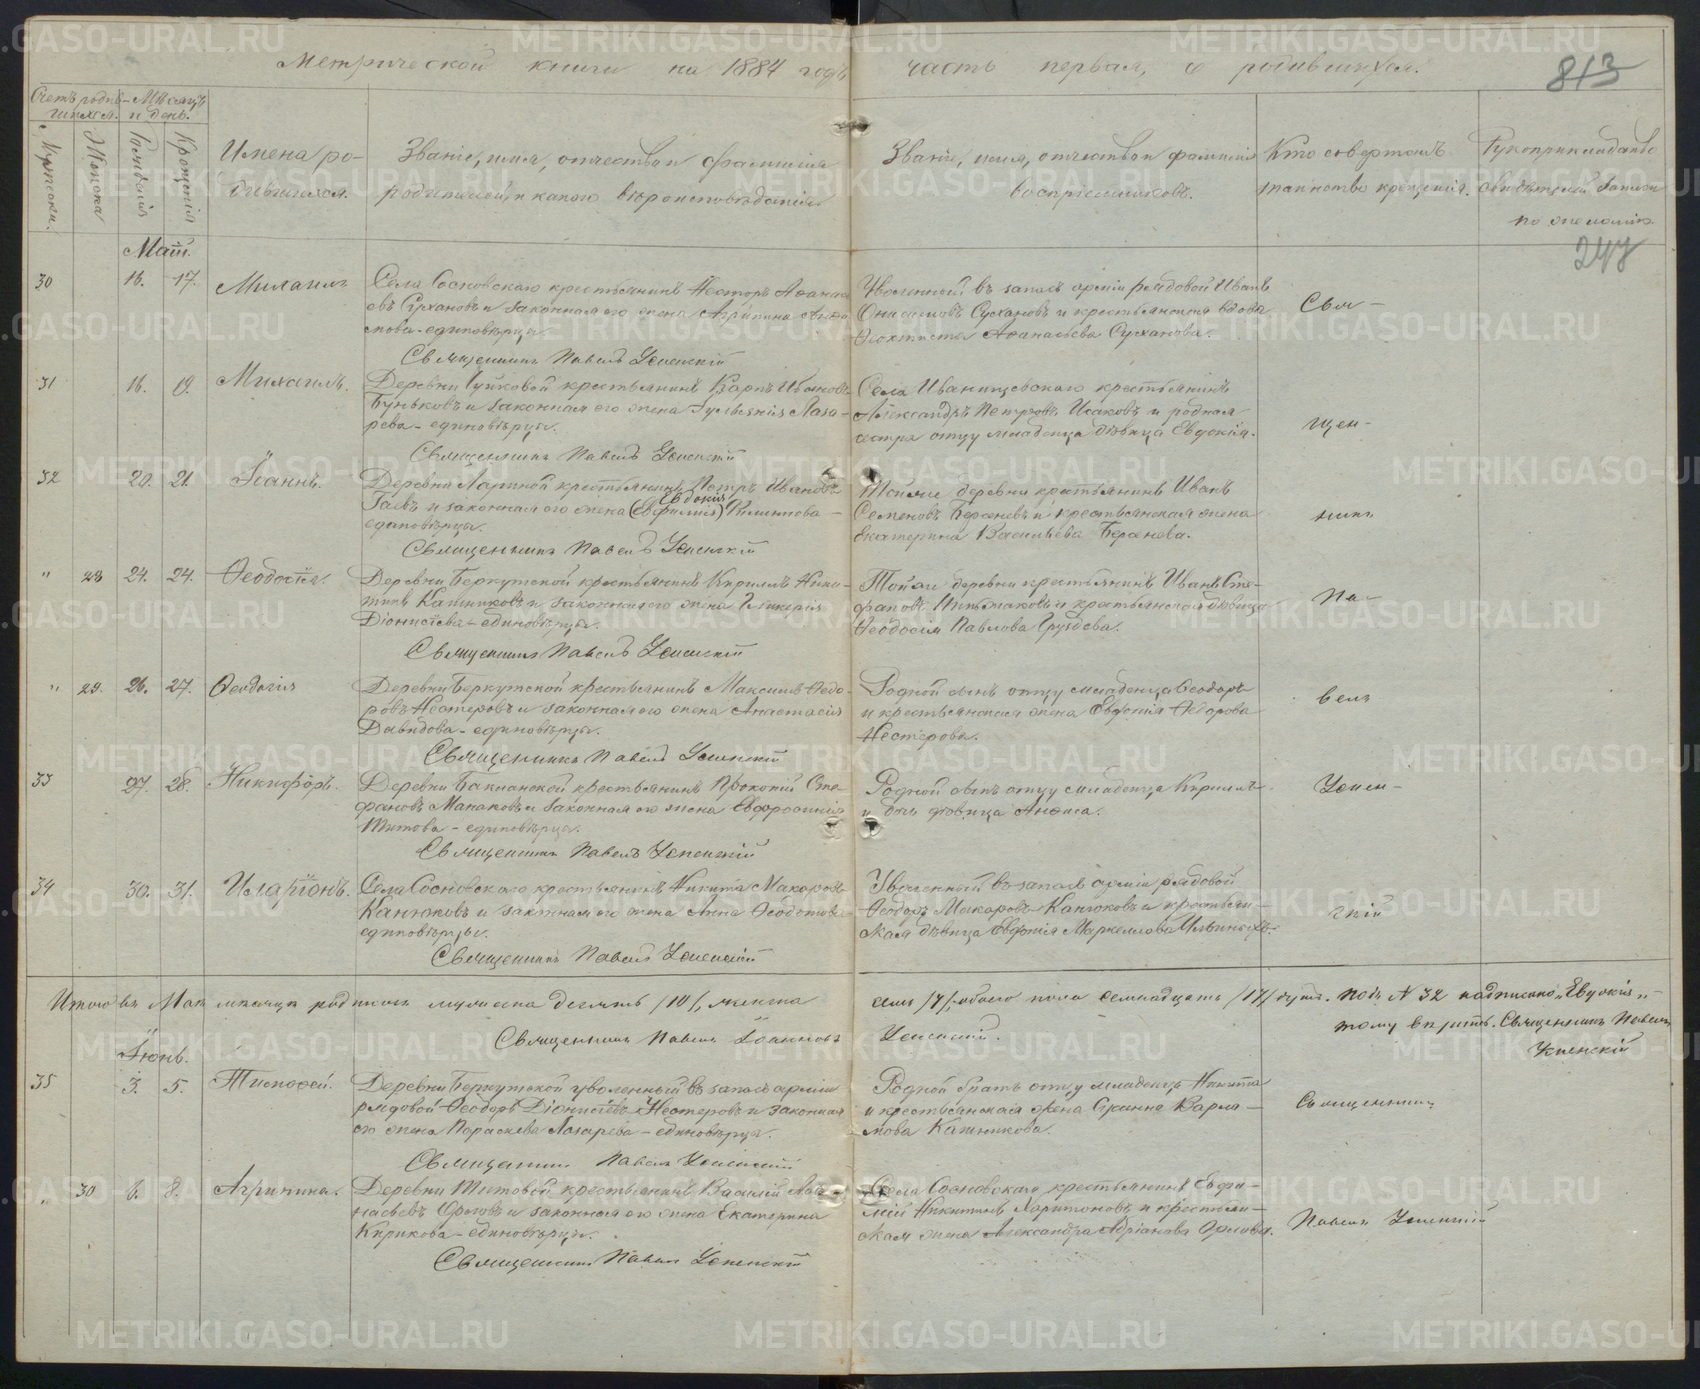 METRIKI.GASO-URAL.RU
Метрической книги на 1884 годъ
часть первая, о родившихся.
813
Счетъ родив-
шихся.
Мѣсяцъ
и день.
Мужеска.
Женска
Рожденія
Крещенія
Имена ро-
дившихся.
Званіе, имя, отчество и фамилія
родителей, и какого вѣроисповѣданія
Званіе, имя, отчество и фамилія
воспріемниковъ.
Кто совершалъ
таинство крещенія.
Рукоприкладство
свидѣтелей записи
по желанію.
247
Маій.
30 16. 17. Михаилъ
Села Сосновскаго крестьянинъ Несторъ Аѳанась
евъ Сухановъ и законная его жена Агрипина
единовѣрцы.
Священникъ Павелъ Успенскій
Уволенный въ запасъ арміи рядовой Иванъ
Онисимовъ Сухановъ и крестьянская вдова
Ѳеоктиста Аѳанасьева Суханова.
Свя-
31 16. 19. Михаилъ.
Деревни крестьянинъ Карпъ Ивановъ
Буньковъ и законная его жена Лаза-
рева - единовѣрцы.
Священникъ Павелъ Успенскій
Села Иванищевскаго крестьянинъ
Александръ Петровъ Исаковъ и родная
сестра отцу младенца дѣвица Евдокія.
щен-
32 20. 21. Іоаннъ.
Деревни крестьянинъ Петръ Ивановъ
Евдокія
и законная его жена (Евфимія) Филиппова -
единовѣрцы.
Священникъ Павелъ Успенскій
Той же деревни крестьянинъ Иванъ
Семеновъ и крестьянская жена
Екатерина Васильева
никъ
" 28 24. 24. Ѳеодосія.
Деревни Беркутской крестьянинъ Кириллъ Ники-
тинъ Кашниковъ и законная его жена Гликерія
Діонисіева - единовѣрцы.
Священникъ Павелъ Успенскій
Той же деревни крестьянинъ Иванъ Сте-
фановъ и крестьянская дѣвица
Ѳеодосія Павлова Груздева.
Па-
" 29. 26. 27. Ѳеодосія
Деревни Беркутской крестьянинъ Максимъ Ѳедо-
ровъ Нестеровъ и законная его жена Анастасія
Давидова - единовѣрцы.
Священникъ Павелъ Успенскій
Родной сынъ отцу младенца Ѳеодоръ
и крестьянская жена Евфимія Ѳедорова
Нестерова.
велъ
33 27. 28. Никифоръ.
Деревни Бакланской крестьянинъ Прокопій Сте-
фановъ Манаковъ и законная его жена Евфросинія
Титова - единовѣрцы.
Священникъ Павелъ Успенскій
Родной сынъ отцу младенца Кириллъ
и дочь дѣвица Анфиса.
Успен-
34 30. 31. Иларіонъ.
Села Сосновскаго крестьянинъ Никита Макаровъ
Канюковъ и законная его жена Анна Ѳеодотова
единовѣрцы.
Священникъ Павелъ Успенскій
Уволенный въ запасъ арміи рядовой
Ѳеодоръ Макаровъ Канюковъ и крестьян-
ская дѣвица Евфимія Маркеллова Ильиныхъ.
скій
Итого въ Маѣ мѣсяцѣ родилось мужеска десять /10/, женска
семь /7/, обоего пола семнадцать /17/ душъ.
Священникъ Павелъ Іоанновъ
Успенскій.
Подъ № 32 надписано „Евдокія„ -
тому вѣрить. Священникъ Павелъ
Успенскій
Іюнь.
35 3. 5. Тимоѳей.
Деревни Беркутской уволенный въ запасъ арміи
рядовой Ѳеодоръ Діонисіевъ Нестеровъ и законная
его жена Параскева Лазарева - единовѣрцы.
Священникъ Павелъ Успенскій
Родной братъ отцу младенца Никита
и крестьянская жена Ирина Варла-
мова Кашникова.
Священникъ
" 30 6. 8. Агрипина.
Деревни Титовой крестьянинъ Василій Аѳа-
насьевъ Орловъ и законная его жена Екатерина
Кирикова - единовѣрцы.
Священникъ Павелъ Успенскій
Села Сосновскаго крестьянинъ Евфи-
мій Никитинъ Харитоновъ и крестьян-
ская жена Александра Адріанова Орлова.
Павелъ Успенскій